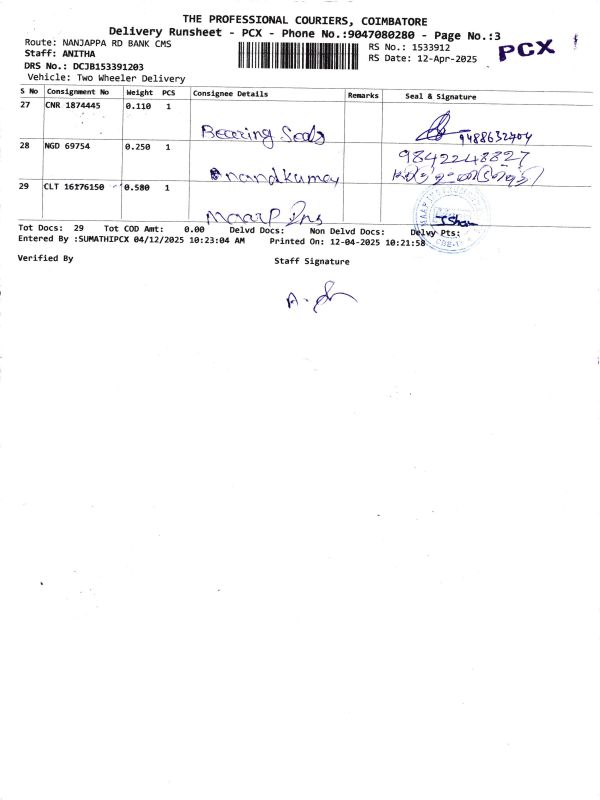 THE PROFESSIONAL COURIERS, COIMBATORE
Delivery Runsheet - PCX - Phone No.:9047080280 - Page No.:3
Route: NANJAPPA RD BANK CMS
RS No.: 1533912
PCX
Staff: ANITHA
RS Date: 12-Apr-2025
DRS No.: DCJB153391203
Vehicle: Two Wheeler Delivery
S No Consignment No Weight PCS Consignee Details Remarks Seal & Signature
27 CNR 1874445 0.110 1
Bearing Seals 9488632704
28 NGD 69754 0.250 1 9842248827
Anandkumar
29 CLT 16176150 0.580 1
MAARP Ins
Tot Docs: 29 Tot COD Amt: 0.00 Delvd Docs: Non Delvd Docs: Delvy Pts:
Entered By :SUMATHIPCX 04/12/2025 10:23:04 AM Printed On: 12-04-2025 10:21:58
Verified By Staff Signature